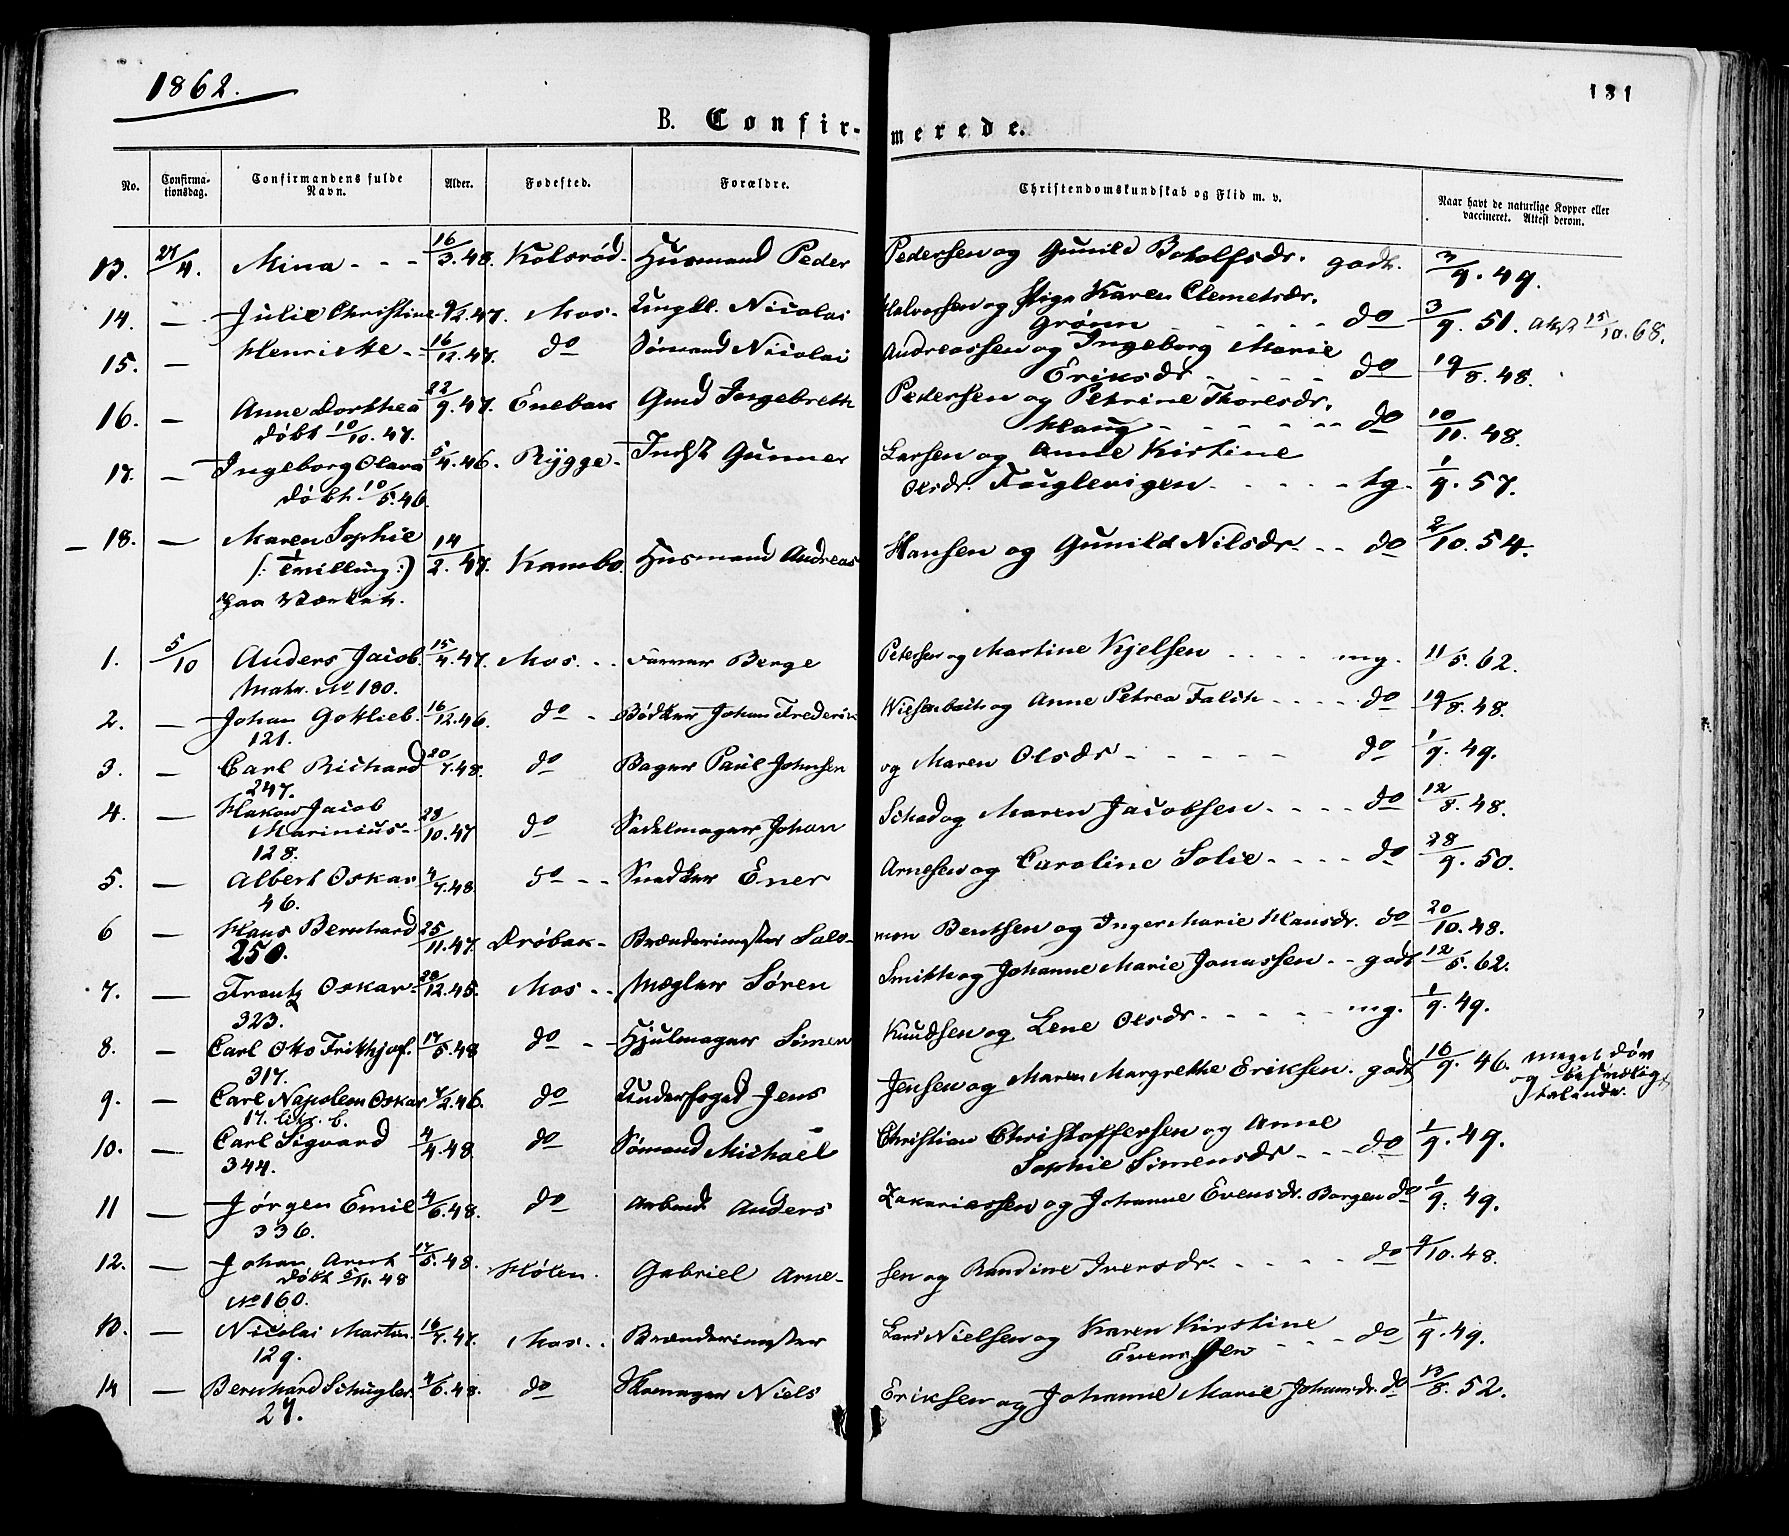 1862.
131
B. Confir- merede.
No. Confirma-tionsdag. Confirmandens fulde Navn. Alder. Fødested. Forældre. Christendomskundskab og Flid m. v. Naar havt de naturlige Kopper eller vaccineret. Attest derom.
13. 27/4. Mina - - - 16/3.48. Kolsrød. Husmand Peder Pedersen og Gunild Botolfsdr. godt. 3/9. 49.
14. — Julie Christine 9/2.47. Mos. Ungkl. Nicolai Halvorsen og Pige Karen Clemetsdr.
Grønn - - - - - do 3/9. 51. Att. 15/10. 68.
15. — Henriette - 16/12.47. do Sømand Nicolai Andreassen og Ingeborg Marie
Eriksdr - - - - do 19/8. 48.
16. — Anne Dorthea 22/9.47. Enebak Gmd Ingebreth Pedersen og Petrine Thoresdr.
døbt 10/10. 47. Haug - - - - - - do 10/11. 48.
17. — Ingeborg Olava 5/4.46. Rygge - Indst Gunner Larsen og Anne Kirstine
døbt 10/5.46. Olsdr. Fuglevigen - - - - tg. 1/9. 57.
— 18. — Maren Sophie 14/2.47. Kambo. Husmand Andreas Hansen og Gunild Nilsdr. - - do 2/10. 54.
(: Tvilling :)
paa Værket.
1. 5/10 Anders Jacob. 15/4.47. Mos. - - Farver Berge Petersen og Martine Kjelsen - - - - mg. 11/5. 62.
Matr. No 180.
2. — Johan Gotlieb. 16/12.46. do - Bødker Johan Frederik og Anne Petrea Falch - - - - do 19/8. 48.
121.
3. — Carl Richard 20/7.48. do Bager Paul Johnsen og Maren Olsdr - - - - - do 1/9. 49.
247.
4. — Hakon Jacob
Marinius - 28/10.47 do Sadelmager Johan Schad og Maren Jacobsen - - - - do 12/8. 48.
128.
5. — Albert Oskar 4/7.48. do - - Snedker Ener Arnesen og Caroline Solie - - - - do 28/9. 50.
46.
6 — Hans Bernhard 25/11.47 Drøbak - Brænderimester Salo- mon Bentsen og Inger Marie Hansdr. do 20/10. 48.
250.
7. — Frantz Oskar - 28/12.45. Mos - - Mægler Søren Smith og Johanne Marie Jonassen - - godt 12/5. 62.
323.
8. — Carl Otto Frithjof. 17/5.48 do - - Hjulmager Simen Knudsen og Lene Olsdr - - - - - mg. 1/9. 49.
317.
9. — Carl Napoleon Oskar 7/2.46. do Underfoged Jens Jensen og Maren Margrethe Eriksen. godt 16/9. 46. meget døv
og
talende.
17. litr. b.
10. — Carl Sigvard 4/4.48 do Sømand Michael Christian Christoffersen og Anne
344. Sophie Simensdr - - - do 1/9. 49.
11 — Jørgen Emil 4/6.48. do Arbmd. Anders Zakariassen og Johanne Evensdr. Borgen do 1/9. 49.
336.
12. — Johan Arent 17/5.48. Hølen. Gabriel Arne- sen og Randine Iversdr. - - - - do 9/10. 48.
døbt 5/11. 48
No 160.
13. — Nicolai Martin. 16/7.47. Mos. - Brænderimester Lars Nielsen og Karen Kirstine
129. Evensen - - - do 1/9. 49.
14 — Bernhard Schugler. 4/6.48. do Skomager Niels Eriksen og Johanne Marie Johansdr. do 13/8. 52.
27.